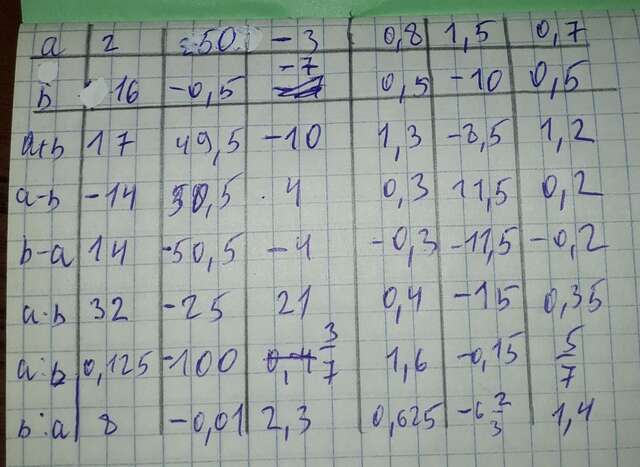 a 2 50 -3 0,8 1,5 0,7
b 16 -0,5 -7 0,5 -10 0,5
a+b 17 49,5 -10 1,3 -8,5 1,2
a-b -14 50,5 4 0,3 11,5 0,2
b-a 14 -50,5 -4 -0,3 -11,5 -0,2
a·b 32 -25 21 0,4 -15 0,35
a:b 0,125 -100 3/7 1,6 -0,15 5/7
b:a 8 -0,01 2,3 0,625 -6 2/3 1,4